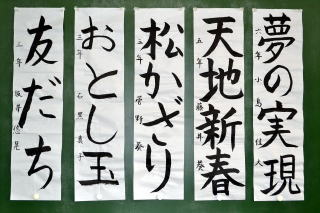 夢の実現
六年 小島佳人
天地新春
五年 藤井葵
松かざり
三年 菅野葵
おとし玉
三年 石黒真子
友だち
三年